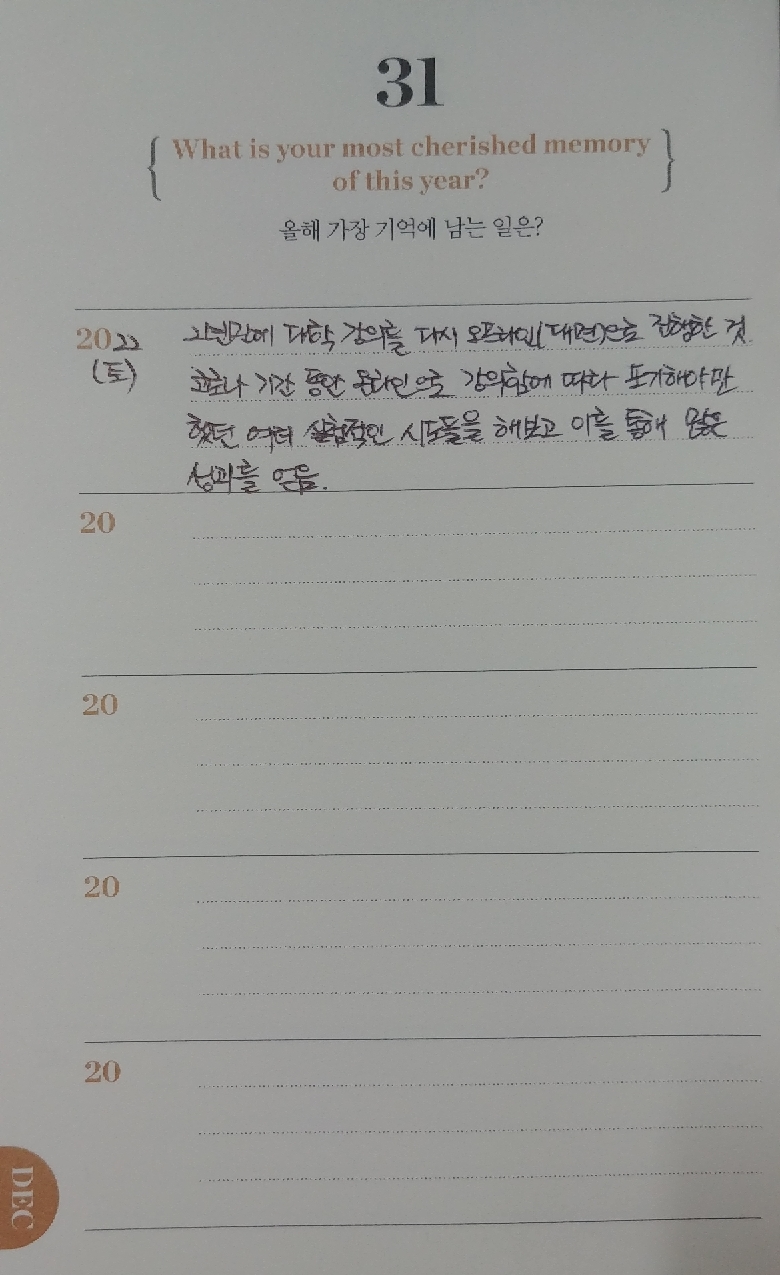 31
What is your most cherished memory
of this year?
올해 가장 기억에 남는 일은?
2022 2년만에 대학 강의를 다시 오프라인(대면)으로 진행한 것.
(토) 코로나 기간 동안 온라인으로 강의함에 따라 포기해야만
했던 여러 실험적인 시도들을 해보고 이를 통해 많은
성과를 얻음.
20
20
20
20
DEC